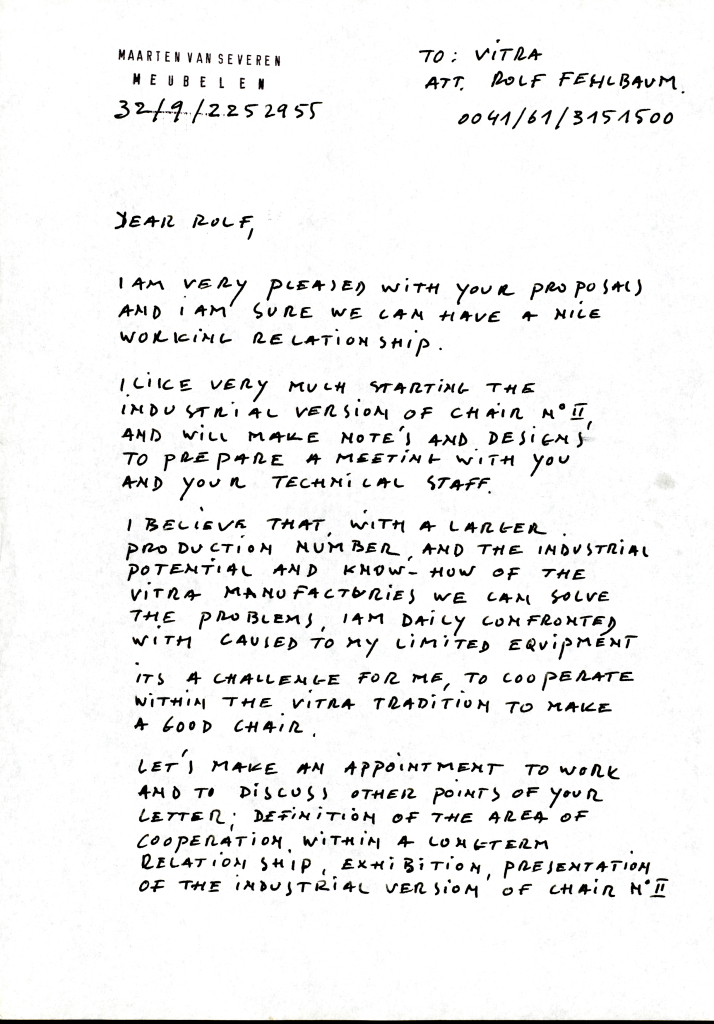 MAARTEN VAN SEVEREN
MEUBELEN
32/9/2252955
TO: VITRA
ATT. ROLF FEHLBAUM.
0041/61/3151500
DEAR ROLF,
I AM VERY PLEASED WITH YOUR PROPOSALS
AND I AM SURE WE CAN HAVE A NICE
WORKING RELATIONSHIP.
I LIKE VERY MUCH STARTING THE
INDUSTRIAL VERSION OF CHAIR N° II,
AND WILL MAKE NOTE'S AND DESIGNS
TO PREPARE A MEETING WITH YOU
AND YOUR TECHNICAL STAFF.
I BELIEVE THAT, WITH A LARGER
PRODUCTION NUMBER, AND THE INDUSTRIAL
POTENTIAL AND KNOW-HOW OF THE
VITRA MANUFACTORIES WE CAN SOLVE
THE PROBLEMS, I AM DAILY CONFRONTED
WITH CAUSED TO MY LIMITED EQUIPMENT
ITS A CHALLENGE FOR ME, TO COOPERATE
WITHIN THE VITRA TRADITION TO MAKE
A GOOD CHAIR.
LET'S MAKE AN APPOINTMENT TO WORK
AND TO DISCUSS OTHER POINTS OF YOUR
LETTER; DEFINITION OF THE AREA OF
COOPERATION, WITHIN A LONGTERM
RELATIONSHIP, EXHIBITION, PRESENTATION
OF THE INDUSTRIAL VERSION OF CHAIR N° II